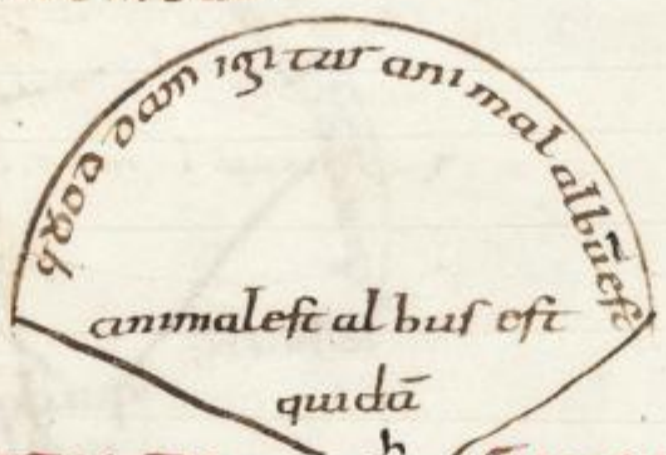 quoddam igitur animal albū est
animal est albus est
quidā
h